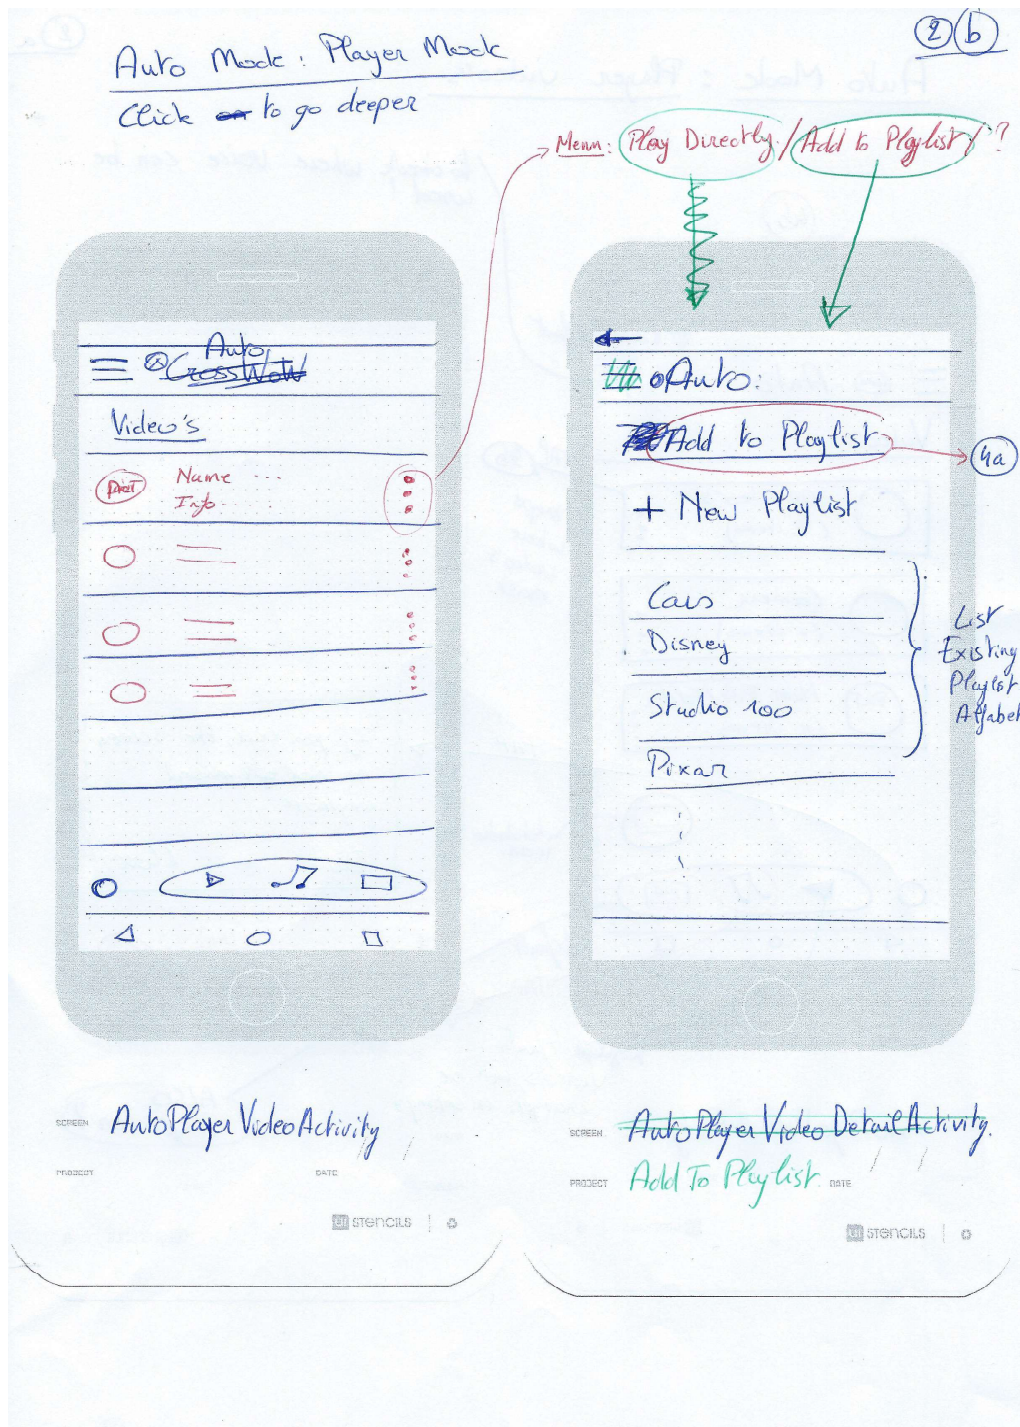 2 b
Auto Mode: Player Mode
Click on to go deeper
Menu: Play Directly / Add to Playlist / ?
Auto
CrossWoW
Video's
Name ...
Info ...
Auto:
Add to Playlist
4a
+ New Playlist
Cars
Disney
Studio 100
Pixar
List
Existing
Playlist
Alfabet
SCREEN AutoPlayerVideoActivity
PROJECT DATE / /
UI STENCILS
SCREEN AutoPlayerVideoDetailActivity.
PROJECT Add To Playlist. DATE / /
UI STENCILS